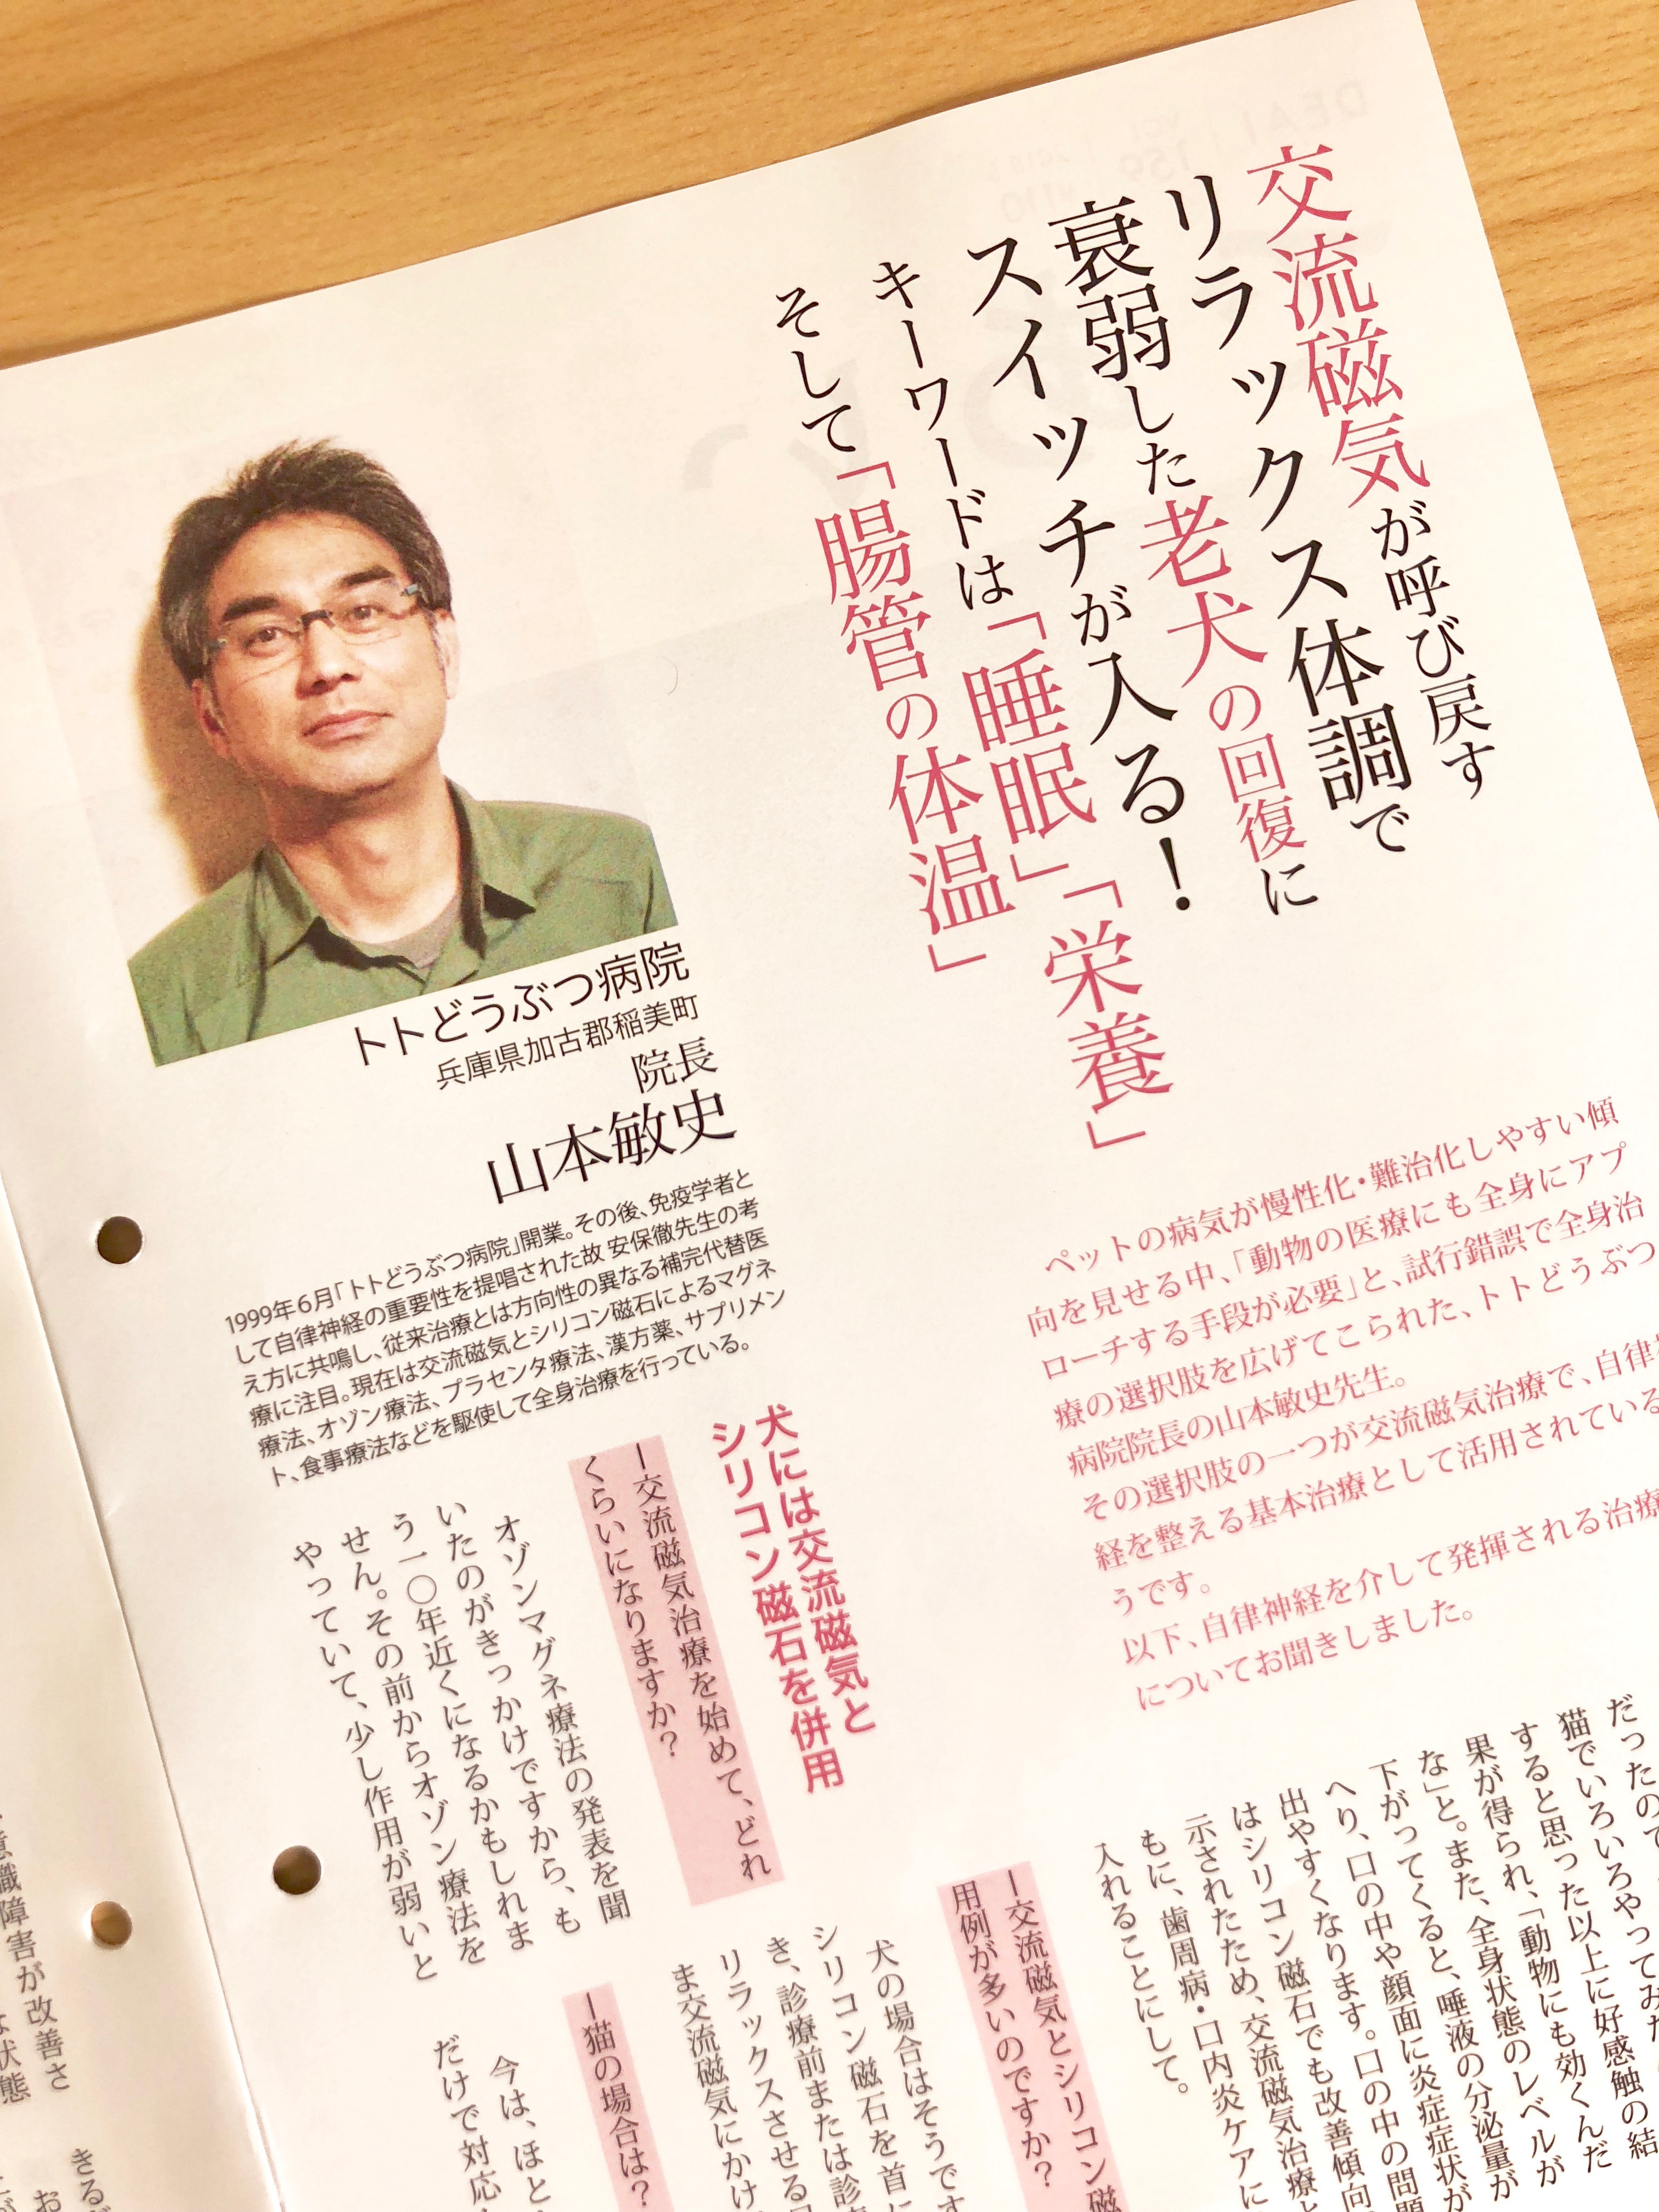 交流磁気が呼び戻す
リラックス体調で
衰弱した老犬の回復に
スイッチが入る！
キーワードは「睡眠」「栄養」
そして「腸管の体温」
トトどうぶつ病院
兵庫県加古郡稲美町
院長
山本敏史
1999年6月「トトどうぶつ病院」開業。その後、免疫学者と
して自律神経の重要性を提唱された故 安保徹先生の考
え方に共鳴し、従来治療とは方向性の異なる補完代替医
療に注目。現在は交流磁気とシリコン磁石によるマグネ
療法、オゾン療法、プラセンタ療法、漢方薬、サプリメン
ト、食事療法などを駆使して全身治療を行っている。
ペットの病気が慢性化・難治化しやすい傾
向を見せる中、「動物の医療にも全身にアプ
ローチする手段が必要」と、試行錯誤で全身治
療の選択肢を広げてこられた、トトどうぶつ
病院院長の山本敏史先生。
その選択肢の一つが交流磁気治療で、自律神
経を整える基本治療として活用されている
うです。
以下、自律神経を介して発揮される治療
についてお聞きしました。
犬には交流磁気と
シリコン磁石を併用
ー交流磁気治療を始めて、どれ
くらいになりますか？
オゾンマグネ療法の発表を聞
いたのがきっかけですから、も
う一〇年近くになるかもしれま
せん。その前からオゾン療法を
やっていて、少し作用が弱いと
だったので
猫でいろいろやってみた
すると思った以上に好感触の結
果が得られ、「動物にも効くんだ
な」と。また、全身状態のレベルが
下がってくると、唾液の分泌量が
へり、口の中や顔面に炎症症状が
出やすくなります。口の中の問題
はシリコン磁石でも改善傾向
示されたため、交流磁気治療と
もに、歯周病・口内炎ケアに
入れることにして。
ー交流磁気とシリコン磁
用例が多いのですか？
犬の場合はそうです
シリコン磁石を首に
き、診療前または診
リラックスさせる
ま交流磁気にかけ
ー猫の場合は？
今は、ほと
だけで対応
意識障害が改善さ
な状態
きる
お